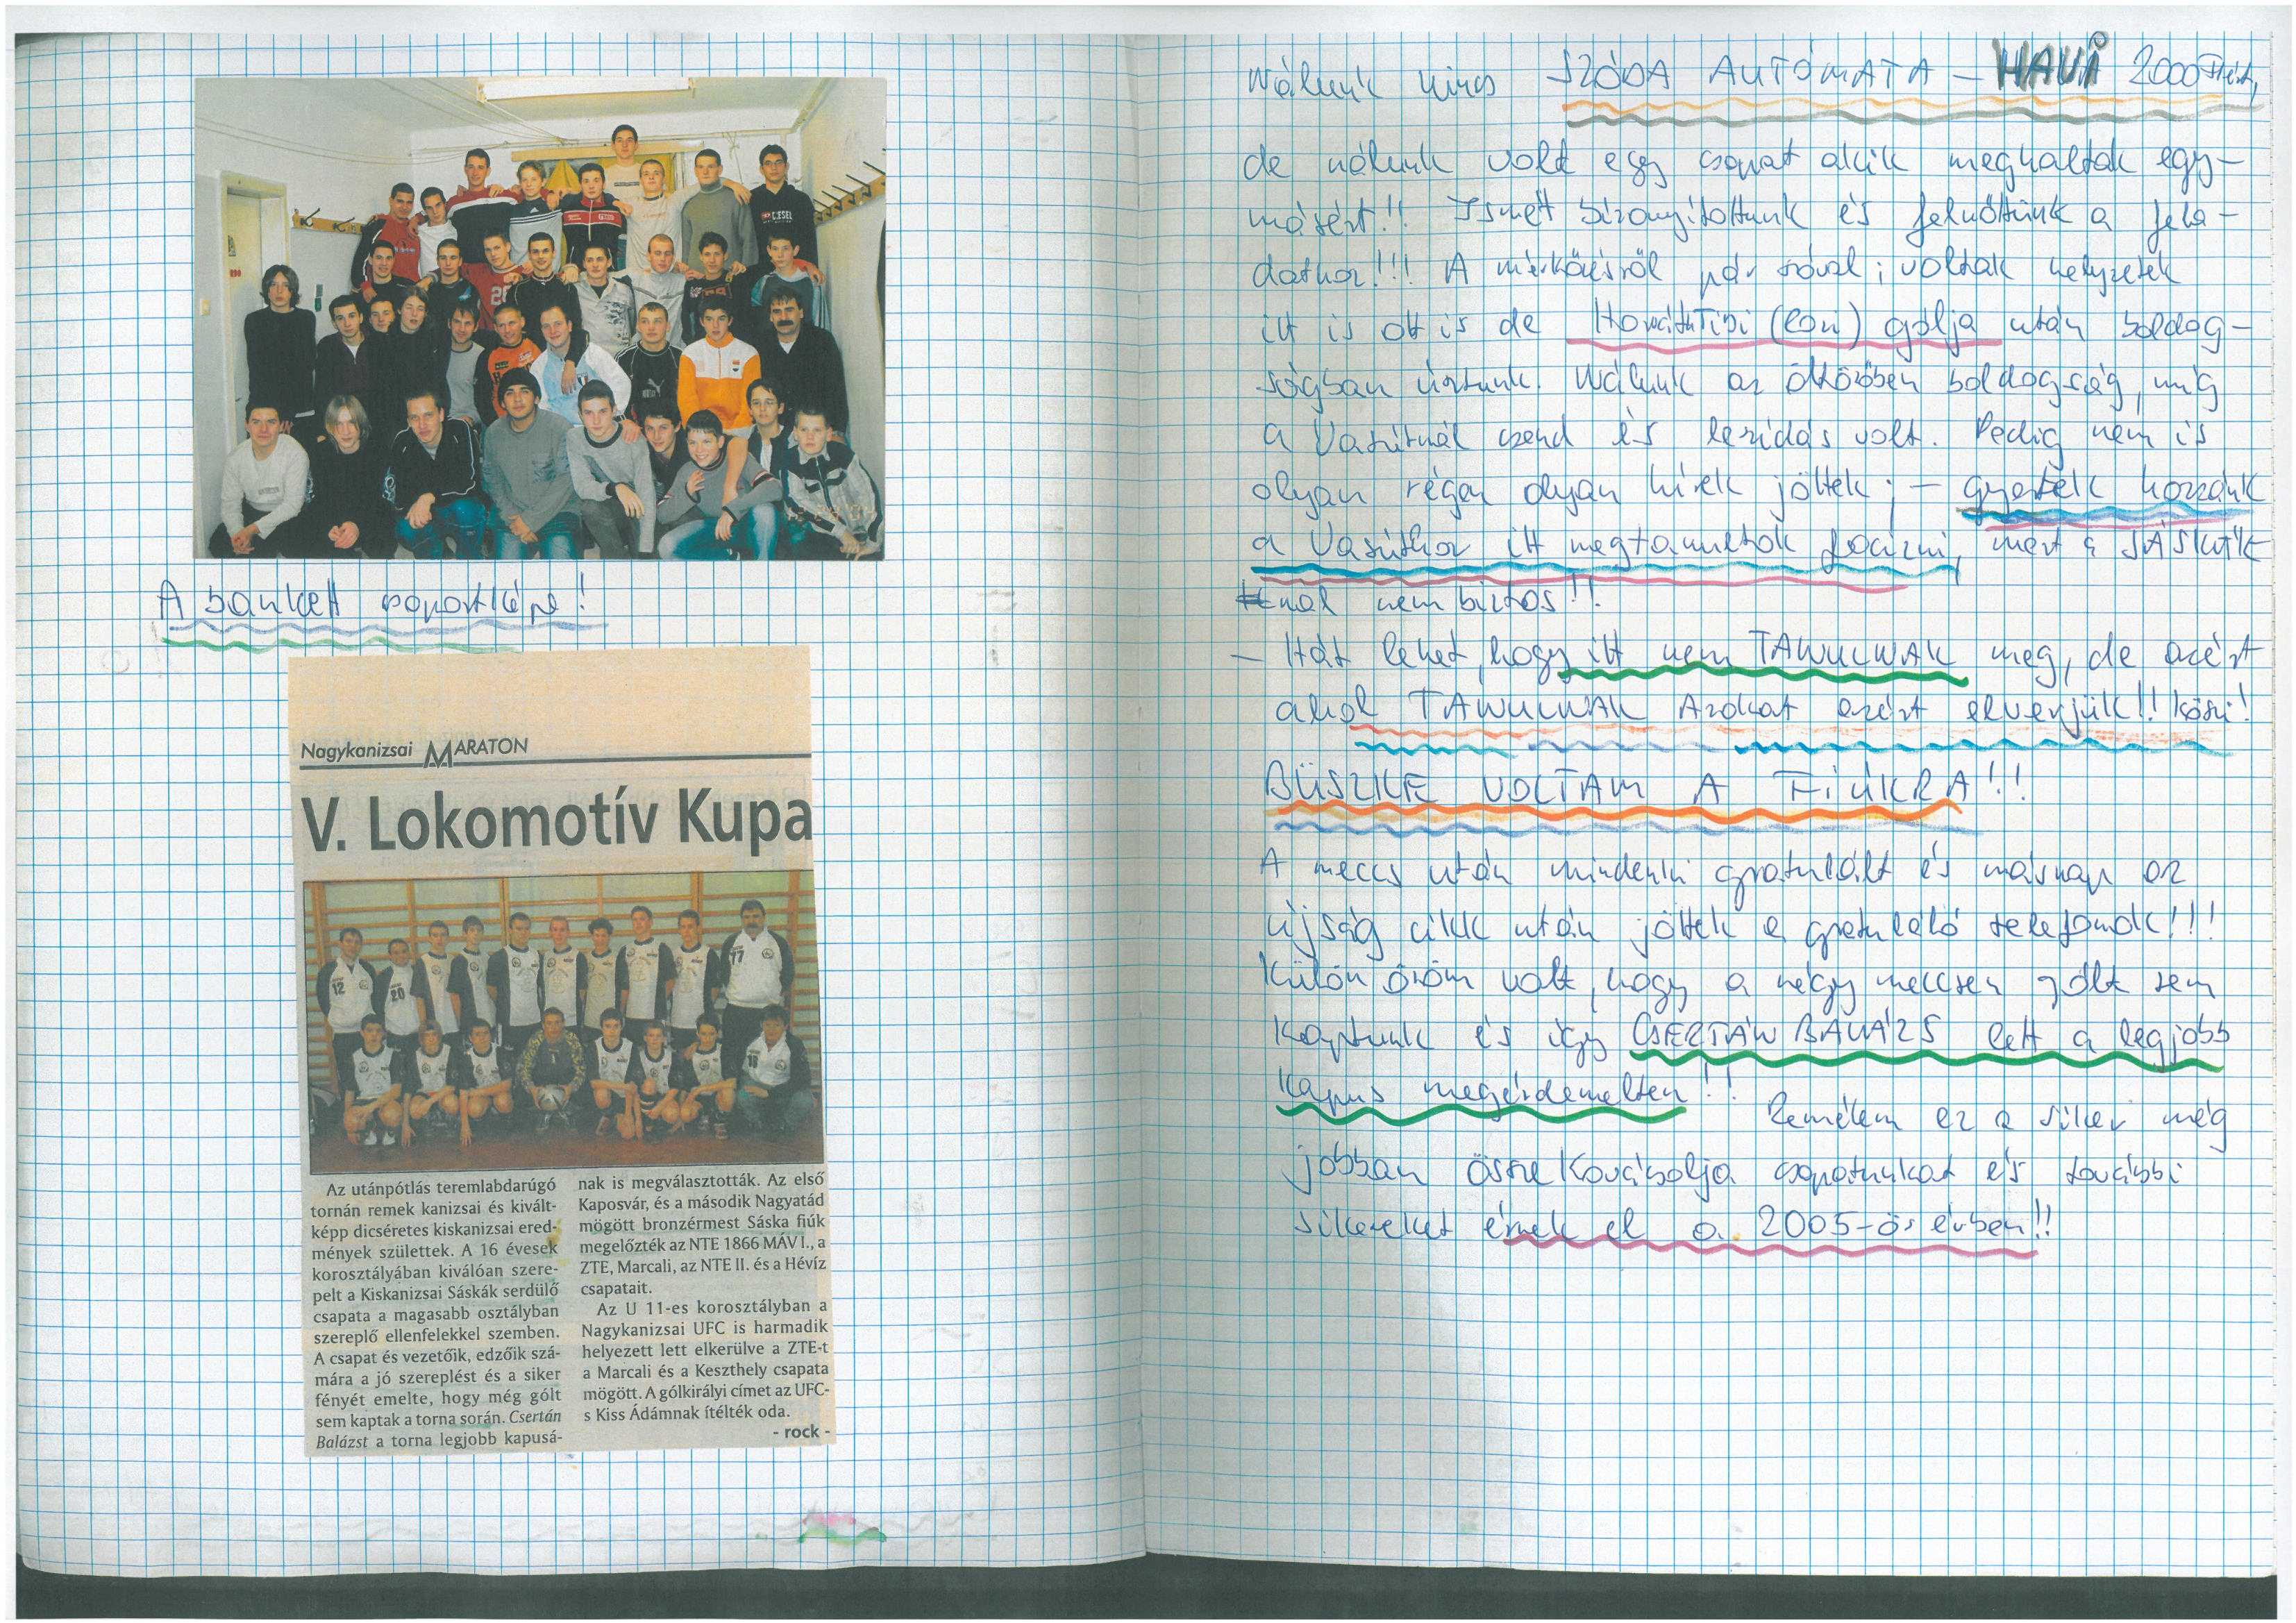 A bankett csoportképe!
Nagykanizsai MARATON
V. Lokomotív Kupa
Az utánpótlás teremlabdarúgó
tornán remek kanizsai és kivált-
képp dicséretes kiskanizsai ered-
mények születtek. A 16 évesek
korosztályában kiválóan szere-
pelt a Kiskanizsai Sáskák serdülő
csapata a magasabb osztályban
szereplő ellenfelekkel szemben.
A csapat és vezetőik, edzőik szá-
mára a jó szereplést és a siker
fényét emelte, hogy még gólt
sem kaptak a torna során. Csertán
Balázst a torna legjobb kapusá-
nak is megválasztották. Az első
Kaposvár, és a második Nagyatád
mögött bronzérmest Sáska fiúk
megelőzték az NTE 1866 MÁV I., a
ZTE, Marcali, az NTE II. és a Hévíz
csapatait.
Az U 11-es korosztályban a
Nagykanizsai UFC is harmadik
helyezett lett elkerülve a ZTE-t
a Marcali és a Keszthely csapata
mögött. A gólkirályi címet az UFC-
s Kiss Ádámnak ítélték oda.
- rock -
Nálunk nincs SZÓDA AUTÓMATA - HAVI 2000 Ftért,
de nálunk volt egy csapat akik meghaltak egy-
másért!! Ismét bizonyítottunk és felnőttünk a fela-
dathoz!!! A mérkőzésről pár szóval; voltak helyzetek
itt is ott is de Horváth Tibi (Lori) gólja után boldog-
ságban úsztunk. Nálunk az öltözőben boldogság, míg
a Vasútnál csend és lezidás volt. Pedig nem is
olyan régen olyan hírek jöttek; - gyertek hozzánk
a Vasúthoz itt megtanultok focizni, mert a SÁSKÁK
nál nem biztos!!
- Hát lehet, hogy itt nem TANULNAK meg, de azért
ahol TANULNAK Azokat azért elverjük!! kösz!
BÜSZKE VOLTAM A FIÚKRA!!
A meccs után mindenki gratulált és másnap az
újság cikk után jöttek a gratuláló telefonok!!!
Külön öröm volt, hogy a négy meccsen gólt sem
kaptunk és így CSERTÁN BALÁZS lett a legjobb
kapus megérdemelten!! Remélem ez a siker még
jobban össze kovácsolja csapatunkat és további
sikereket érnek el a 2005-ös évben!!